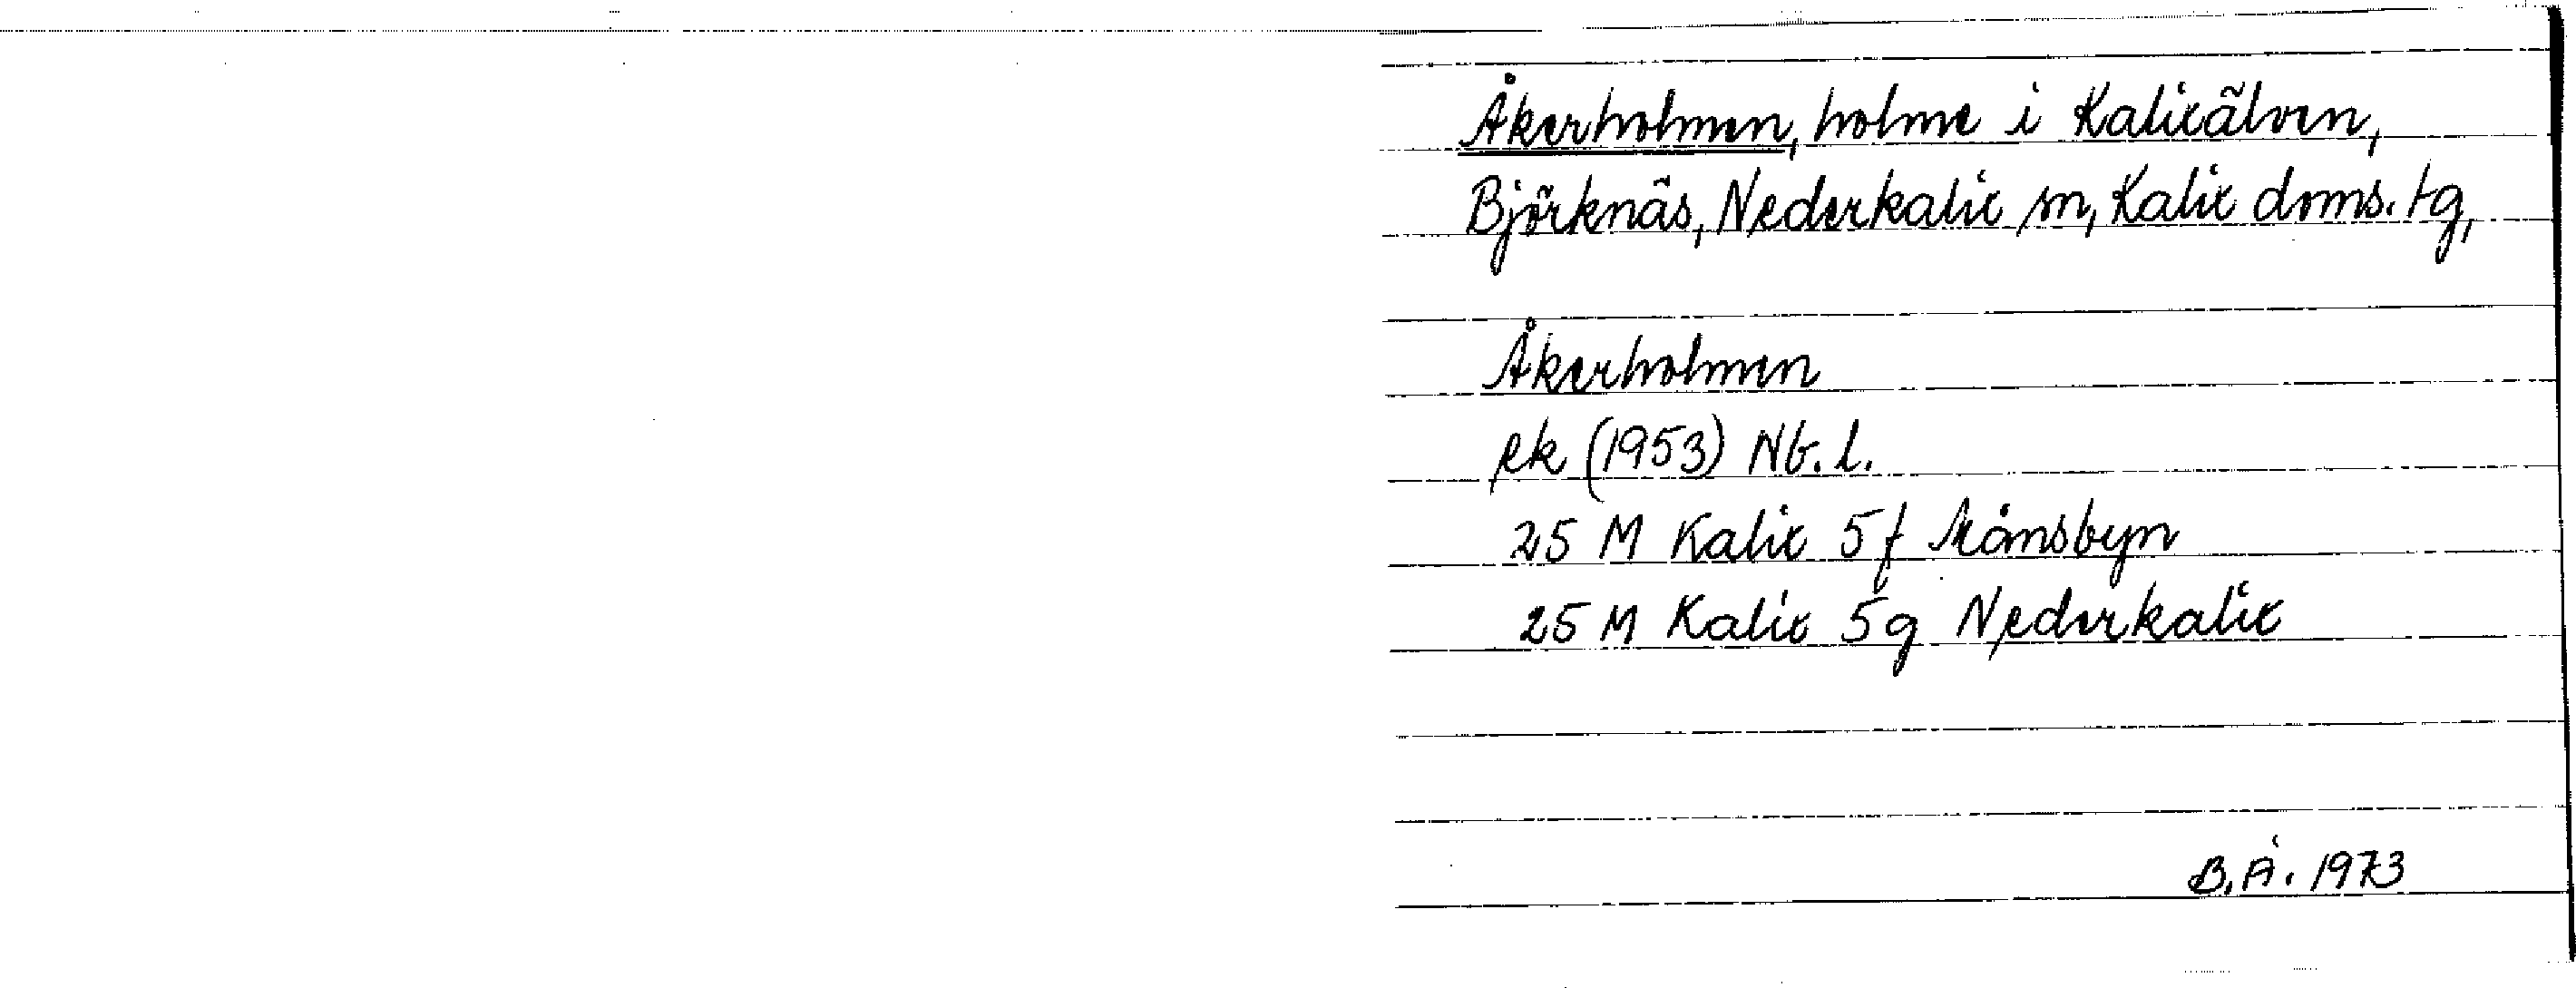 Åkerholmen, holme i Kalixälven,
Björknäs, Nederkalix sn, Kalix doms. tg,
Åkerholmen
ek (1953) Nb. l.
25 M Kalix 5f Månsbyn
25 M Kalix 5g Nederkalix
B.Å. 1973